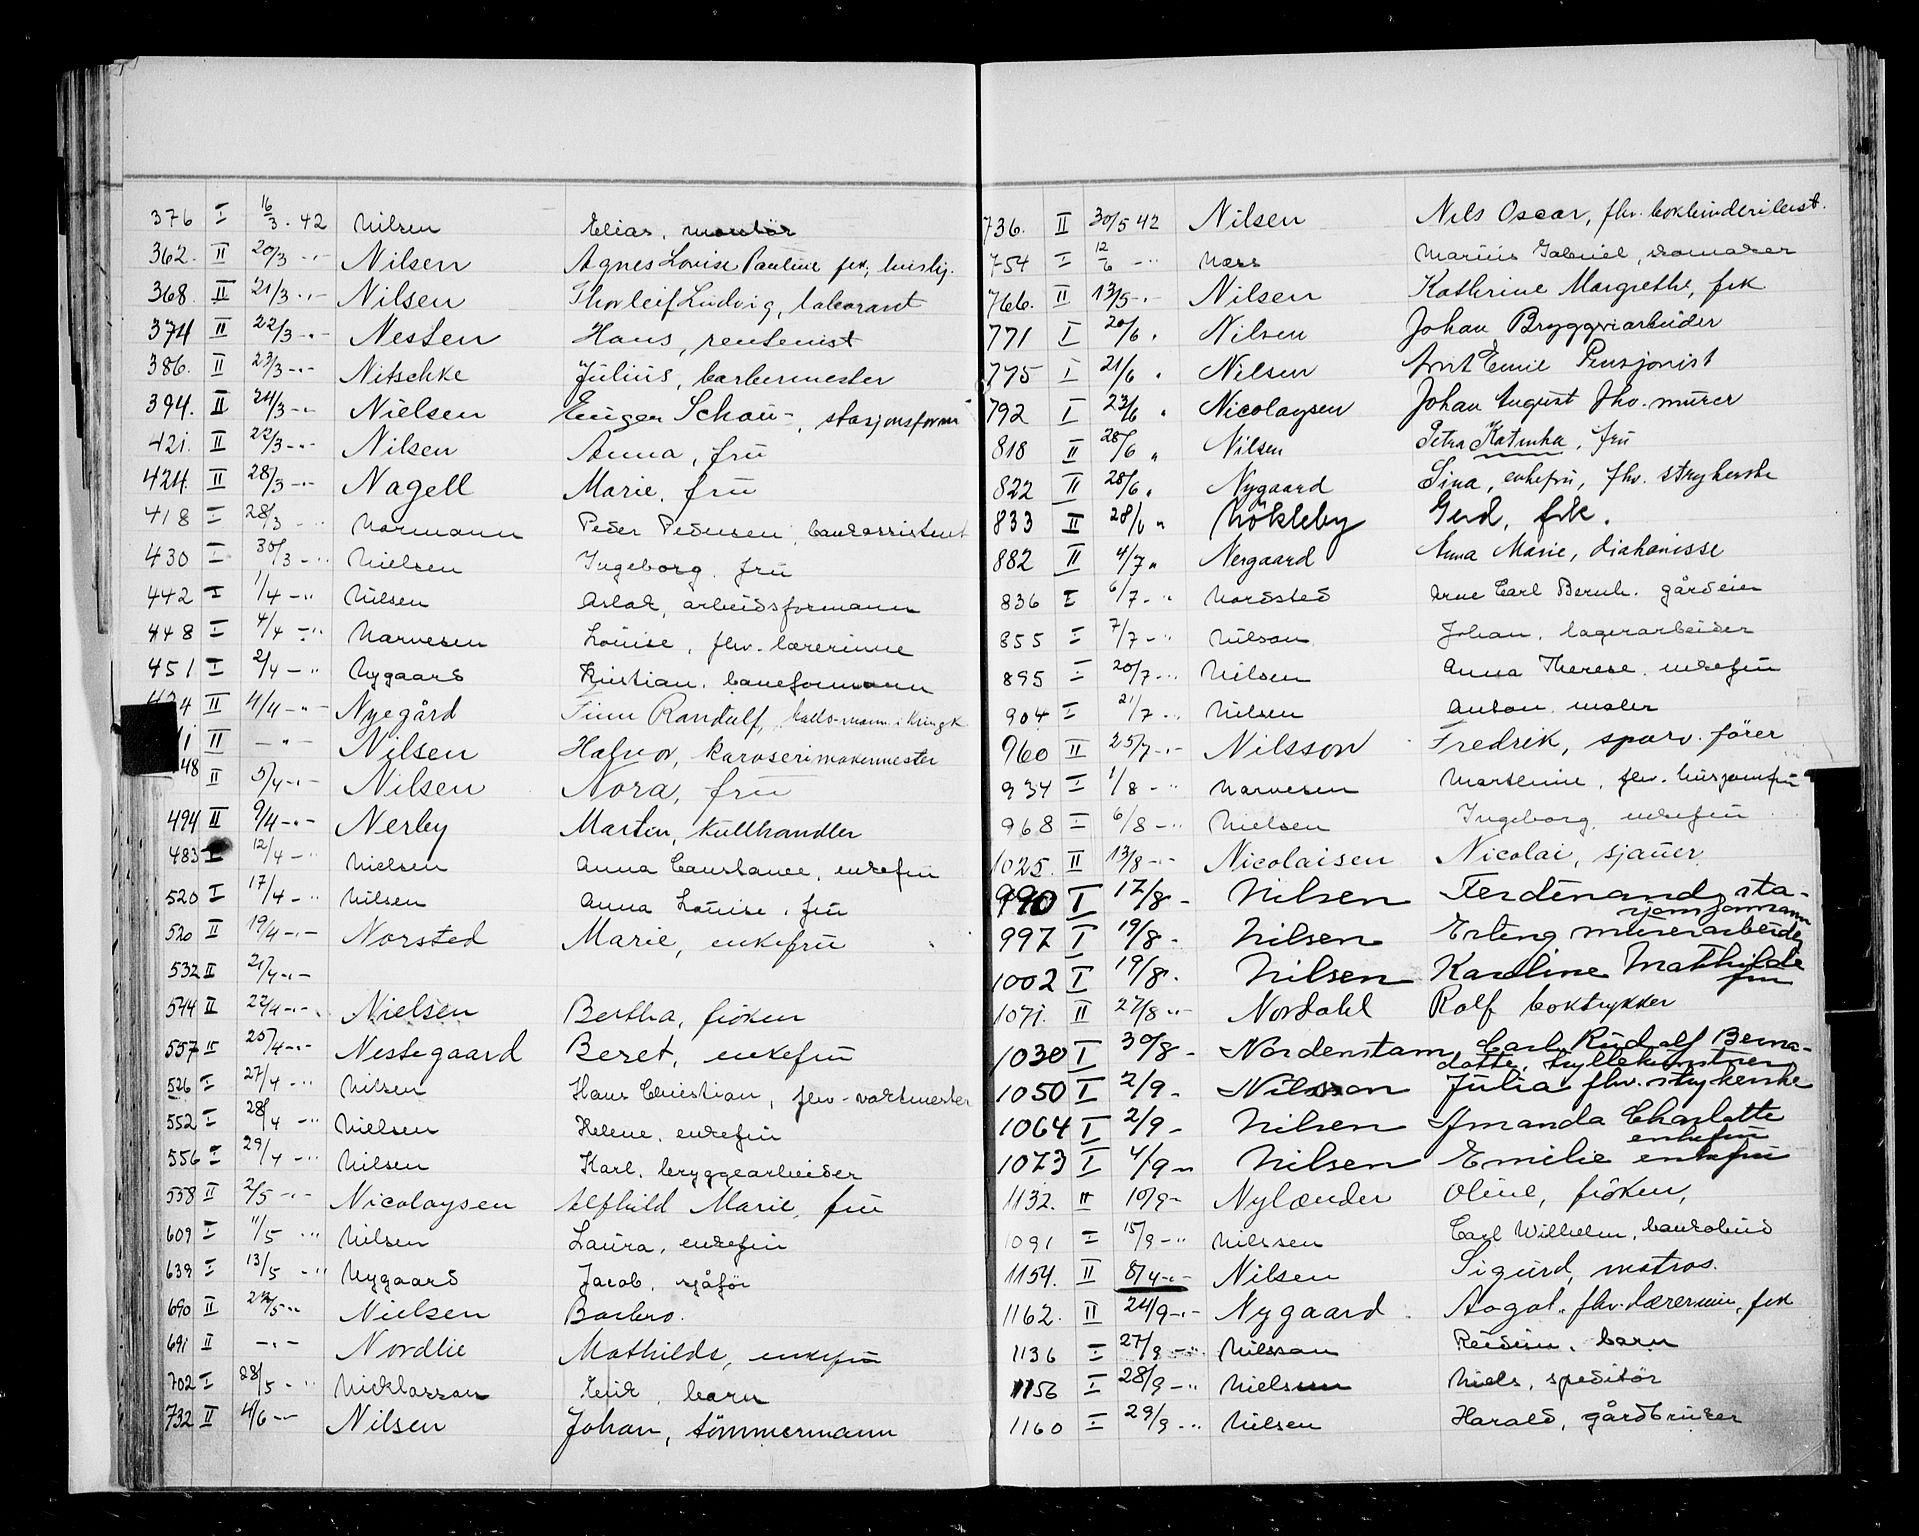 376 I 16/3 . 42 Nilsen Elias, montör
362. II 20/3 -"- Nilsen Agnes Lovise Pauline frk, huslig.
368. II 21/3 -"- Nilsen Thorleif Ludvig, laborant
374 II 22/3 -"- Nesten Hans, rentenist
386. II 23/3 -"- Nitschke Julius, barbermester
394. II 24/3 -"- Nielsen Schou-, stasjonsform
421. II 22/3 -"- Nilsen Anna, fru
424. II 28/3 -"- Nagell Marie, fru
418 I 28/3 -"- Normann Peder Pedersen, bankassistent
430 I 30/3 -"- Nielsen Ingeborg, fru
442 I 1/4 -"- Nilsen Aslak, arbeidsformann
448 I 4/4 -"- Narvesen Louise, fhv. lærerinne
451 I 2/4 -"- Nygaard Kristian, baneformann
II 4/4 -"- Nyegård Finn Randulf,
II -"- Nilsen Halvor, karoserimakermester
48 II 5/4 -"- Nilsen Nora, fru
494 II 9/4 -"- Nerby Martin, kullhandler
483 I 12/4 -"- Nielsen Anna Constance, enkefru
520 I 17/4 -"- Nilsen Anna Louise, fru
520 II 19/4 -"- Norsted Marie, enkefru
532 II 21/4 -"-
544 II 22/4 -"- Nielsen Bertha, fröken
557 II 25/4 -"- Nestegaard Beret, enkefru
526 I 27/4 -"- Nilsen Hans Christian, fhv. vaktmester
552 I 28/4 -"- Nielsen Helene, enkefru
556 I 29/4 -"- Nilsen Karl, bryggearbeider
558 II 2/5 -"- Nicolaysen Alfhild Marie, fru
609 I 11/5 -"- Nilsen Laura, enkefru
639 I 13/5 -"- Nygaard Jacob, sjåfør
690 II 24/5 -"- Nielsen Barbro.
691 II -"- Nordlie Mathilde, enkefru
702 I 28/5 -"- Nicklasson Eirik, barn
732 II 4/6 -"- Nilsen Johan, tömmermann
736. II 30/5 42 Nilsen Nils Oscar, fhv. bokbinderibest.
754 I 12/6 -"- Næss Marius Gabriel, skomaker
766. II 13/5 -"- Nilsen Kathrine Margrethe, frk
771 I 20/6 " Nilsen Johan Bryggeriarbeider
775 I 21/6 " Nilsen Arnt Emil Pensjonist
792 I 23/6 " Nicolaysen Johan August fhv. murer
818 II 28/6 " Nilsen Petra Katinka, fru
822 II 28/6 " Nygaard Sina, enkefru, fhv. strykerske
833 II 28/6 " Nökleby Gerd, frk.
882 II 4/7 " Nergaard Anna Marie, diakonisse
836 I 6/7 -"- Nordsted Arne Carl Bernh. gårdeier
855 I 7/7 -"- Nilson Johan, lagerarbeider
895 I 20/7 -"- Nilsen Anna Therese, enkefru
904 I 21/7 -"- Nilsen Anton, maler
960 II 25/7 -"- Nilsson Fredrik, sporv. förer
934 I 1/8 -"- Narvesen Marthine, fhv. husjomfru
968 I 6/8 -"- Nielsen Ingeborg, enkefru
1025. II 13/8 -"- Nicolaisen Nicolai, sjauer
990 I 17/8 - Nilsen Ferdinand, sta-
sjonsformann
997 I 19/8 - Nilsen Erling murerarbeider
1002 I 19/8. Nilsen Karoline Mathilde
fru
1071. II 27/8 -"- Nordahl Rolf boktrykker
1030 I 30/8 - Nordenstam, Carl Rudolf Berna-
dotte, tryllekunstner
1050 I 2/9 - Nilsson Julia fhv. strykerske
1064 I 2/9 - Nilsen Amanda Charlotte
enkefru
1073 I 4/9 - Nilsen Emilie enkefru
1132. II 10/9 - Nylænder Oline, fröken,
1091 I 15/9 -"- Nilssen Carl Wilhelm, bankbud
1154. II 8/4 -"- Nilsen Sigurd, matros.
1162. II 24/9 -"- Nygaard Aagot. fhv. lærerinne, frk
1136 I 27/9 -"- Nilsson Reidun, barn
1156 I 28/9 -"- Nielsen Niels, speditör
1160 I 29/9 -"- Nilsen Harald, gårdbruker